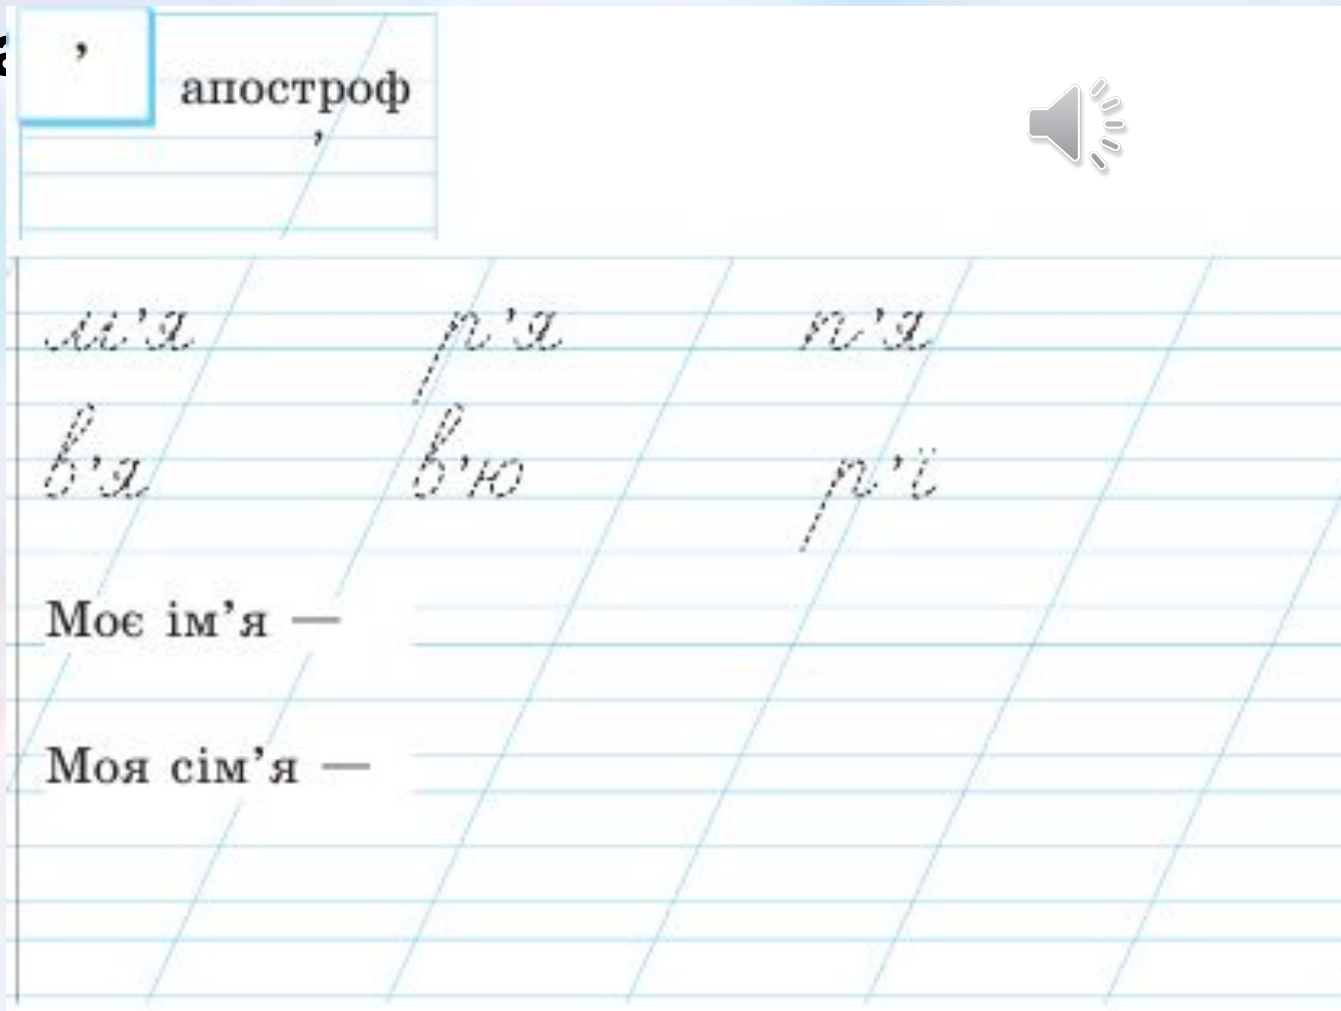 ’
апостроф
’
м’я р’я п’я
в’я в’ю р’ї
Моє ім’я —
Моя сім’я —